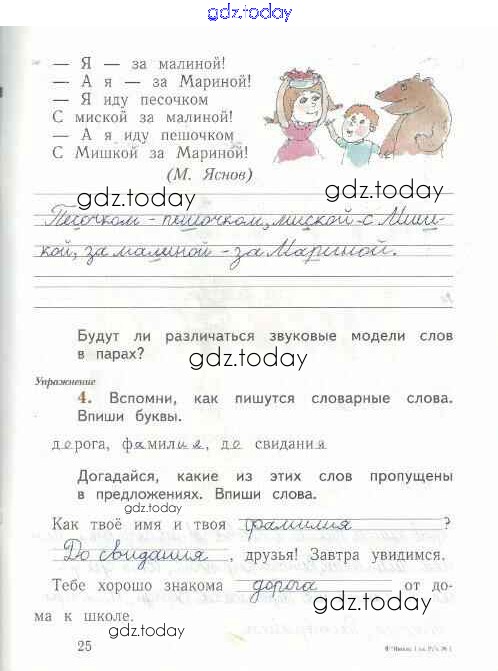 gdz.today
— Я — за малиной!
— А я — за Мариной!
— Я иду песочком
С миской за малиной!
— А я иду пешочком
С Мишкой за Мариной!
(М. Яснов)
gdz.today
gdz.today
Песочком - пешочком, миской - с Миш-
кой, за малиной - за Мариной.
Будут ли различаться звуковые модели слов
в парах?
gdz.today
Упражнение
4. Вспомни, как пишутся словарные слова.
Впиши буквы.
gdz.today
дорога, фамилия, до свидания
Догадайся, какие из этих слов пропущены
в предложениях. Впиши слова.
gdz.today
Как твоё имя и твоя фамилия ?
До свидания, друзья! Завтра увидимся.
Тебе хорошо знакома дорога от до-
ма к школе.
gdz.today
gdz.today
25